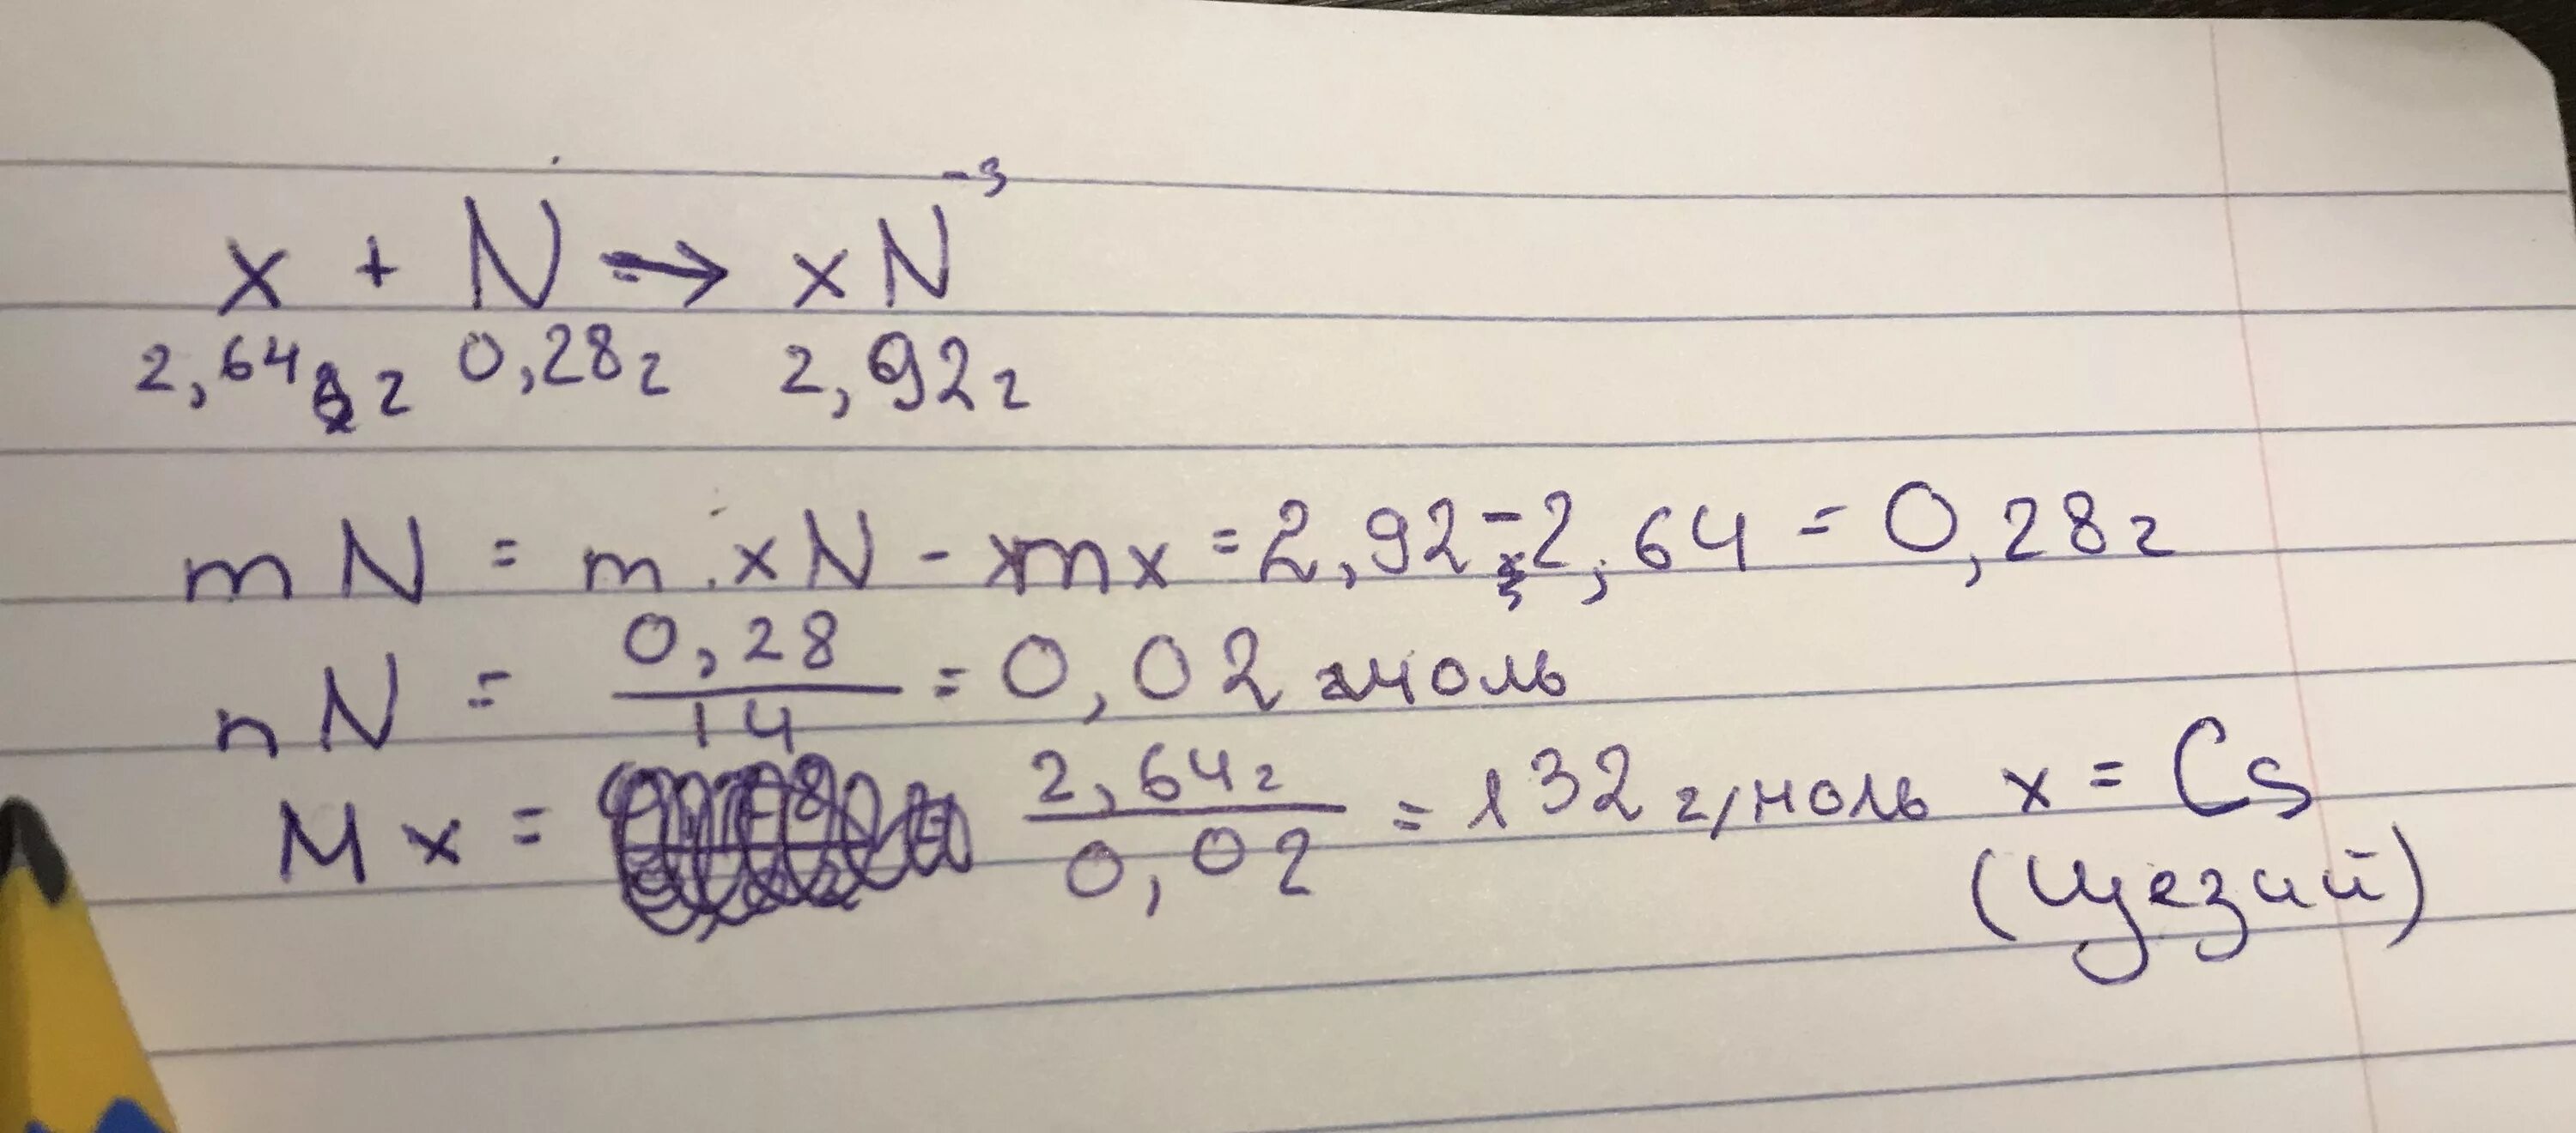 x + N → xN⁻³
2,64 г 0,28г 2,92г
mN = m xN - mx = 2,92-2,64 = 0,28г
nN = 0,28/14 = 0,02 моль
Mx = 2,64г/0,02 = 132 г/моль x = Cs
(цезий)